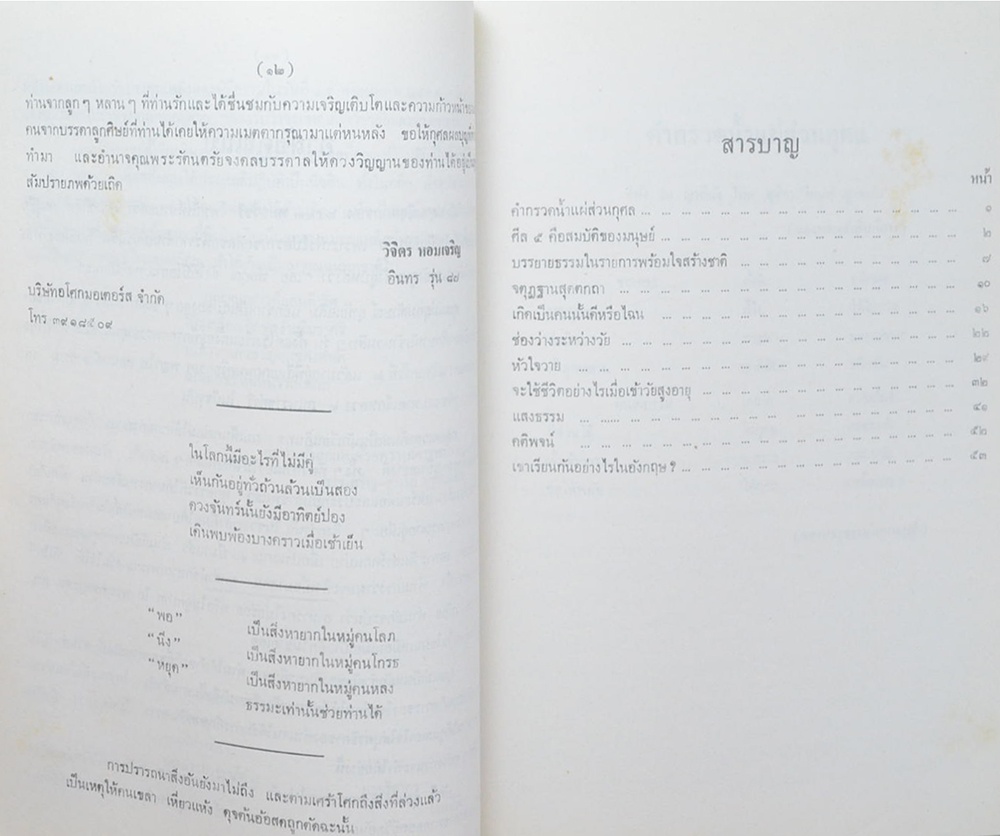 (๑๒)
ท่านจากลูกๆ หลานๆ ที่ท่านรักและได้ชื่นชมกับความเจริญเติบโตและความก้าวหน้าของ
คนจากบรรดาลูกศิษย์ที่ท่านได้เคยให้ความเมตตากรุณามาแต่หนหลัง ขอให้กุศลผลบุญที่
ทำมา และอำนาจคุณพระรัตนตรัยจงดลบรรดาลให้ดวงวิญญานของท่านได้อยู่ใน
สัมปรายภพด้วยเถิด
วิจิตร หอมเจริญ
อินทร รุ่น ๘๗
บริษัทอโศกมอเตอร์ส จำกัด
โทร ๓๙๑๘๕๐๙
ในโลกนี้มีอะไรที่ไม่มีคู่
เห็นกันอยู่ทั่วถ้วนล้วนเป็นสอง
ดวงจันทร์นั้นยังมีอาทิตย์ปอง
เดินพบพ้องบางคราวเมื่อเช้าเย็น
"พอ" เป็นสิ่งหายากในหมู่คนโลภ
"นิ่ง" เป็นสิ่งหายากในหมู่คนโกรธ
"หยุด" เป็นสิ่งหายากในหมู่คนหลง
ธรรมะเท่านั้นช่วยท่านได้
การปรารถนาสิ่งอันยังมาไม่ถึง และตามเศร้าโศกถึงสิ่งที่ล่วงแล้ว
เป็นเหตุให้คนเขลา เหี่ยวแห้ง ดุจต้นอ้อสดถูกตัดฉะนั้น
สารบาญ
หน้า
คำกรวดน้ำแผ่ส่วนกุศล ... ๑
ศีล ๕ คือสมบัติของมนุษย์ ... ๒
บรรยายธรรมในรายการพร้อมใจสร้างชาติ ... ๗
จตุฏฐานสุตตกถา ... ๑๐
เกิดเป็นคนนั้นดีหรือไฉน ... ๑๖
ช่องว่างระหว่างวัย ... ๒๒
หัวใจวาย ... ๒๙
จะใช้ชีวิตอย่างไรเมื่อเข้าวัยสูงอายุ ... ๓๒
แสงธรรม ... ๔๑
คติพจน์ ... ๕๒
เขาเรียนกันอย่างไรในอังกฤษ? ... ๕๓